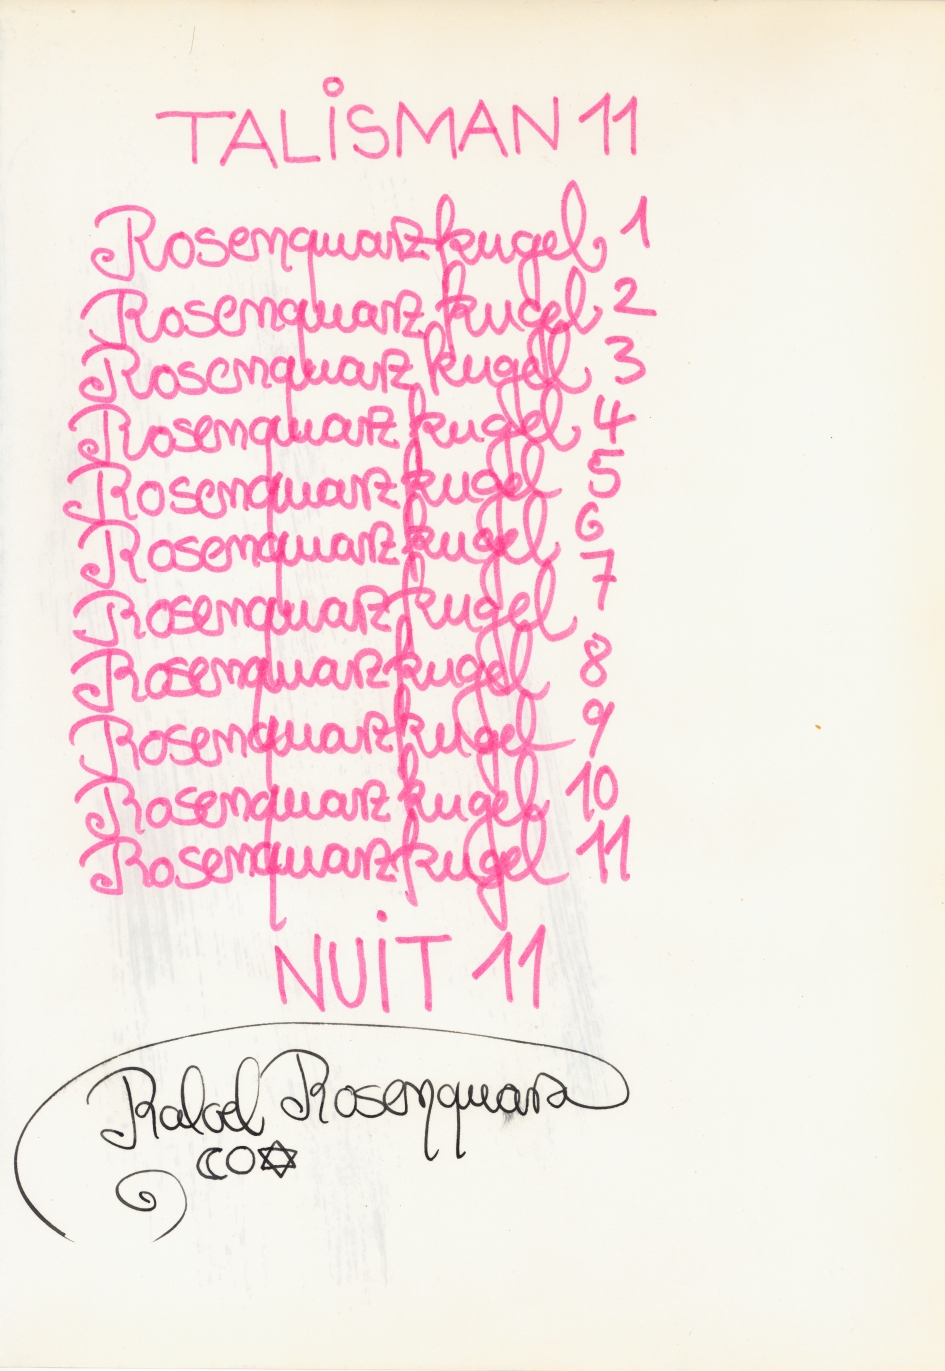 TALiSMAN 11
Rosenquarzkugel 1
Rosenquarzkugel 2
Rosenquarzkugel 3
Rosenquarzkugel 4
Rosenquarzkugel 5
Rosenquarzkugel 6
Rosenquarzkugel 7
Rosenquarzkugel 8
Rosenquarzkugel 9
Rosenquarzkugel 10
Rosenquarzkugel 11
NUiT 11
Rosenquarz